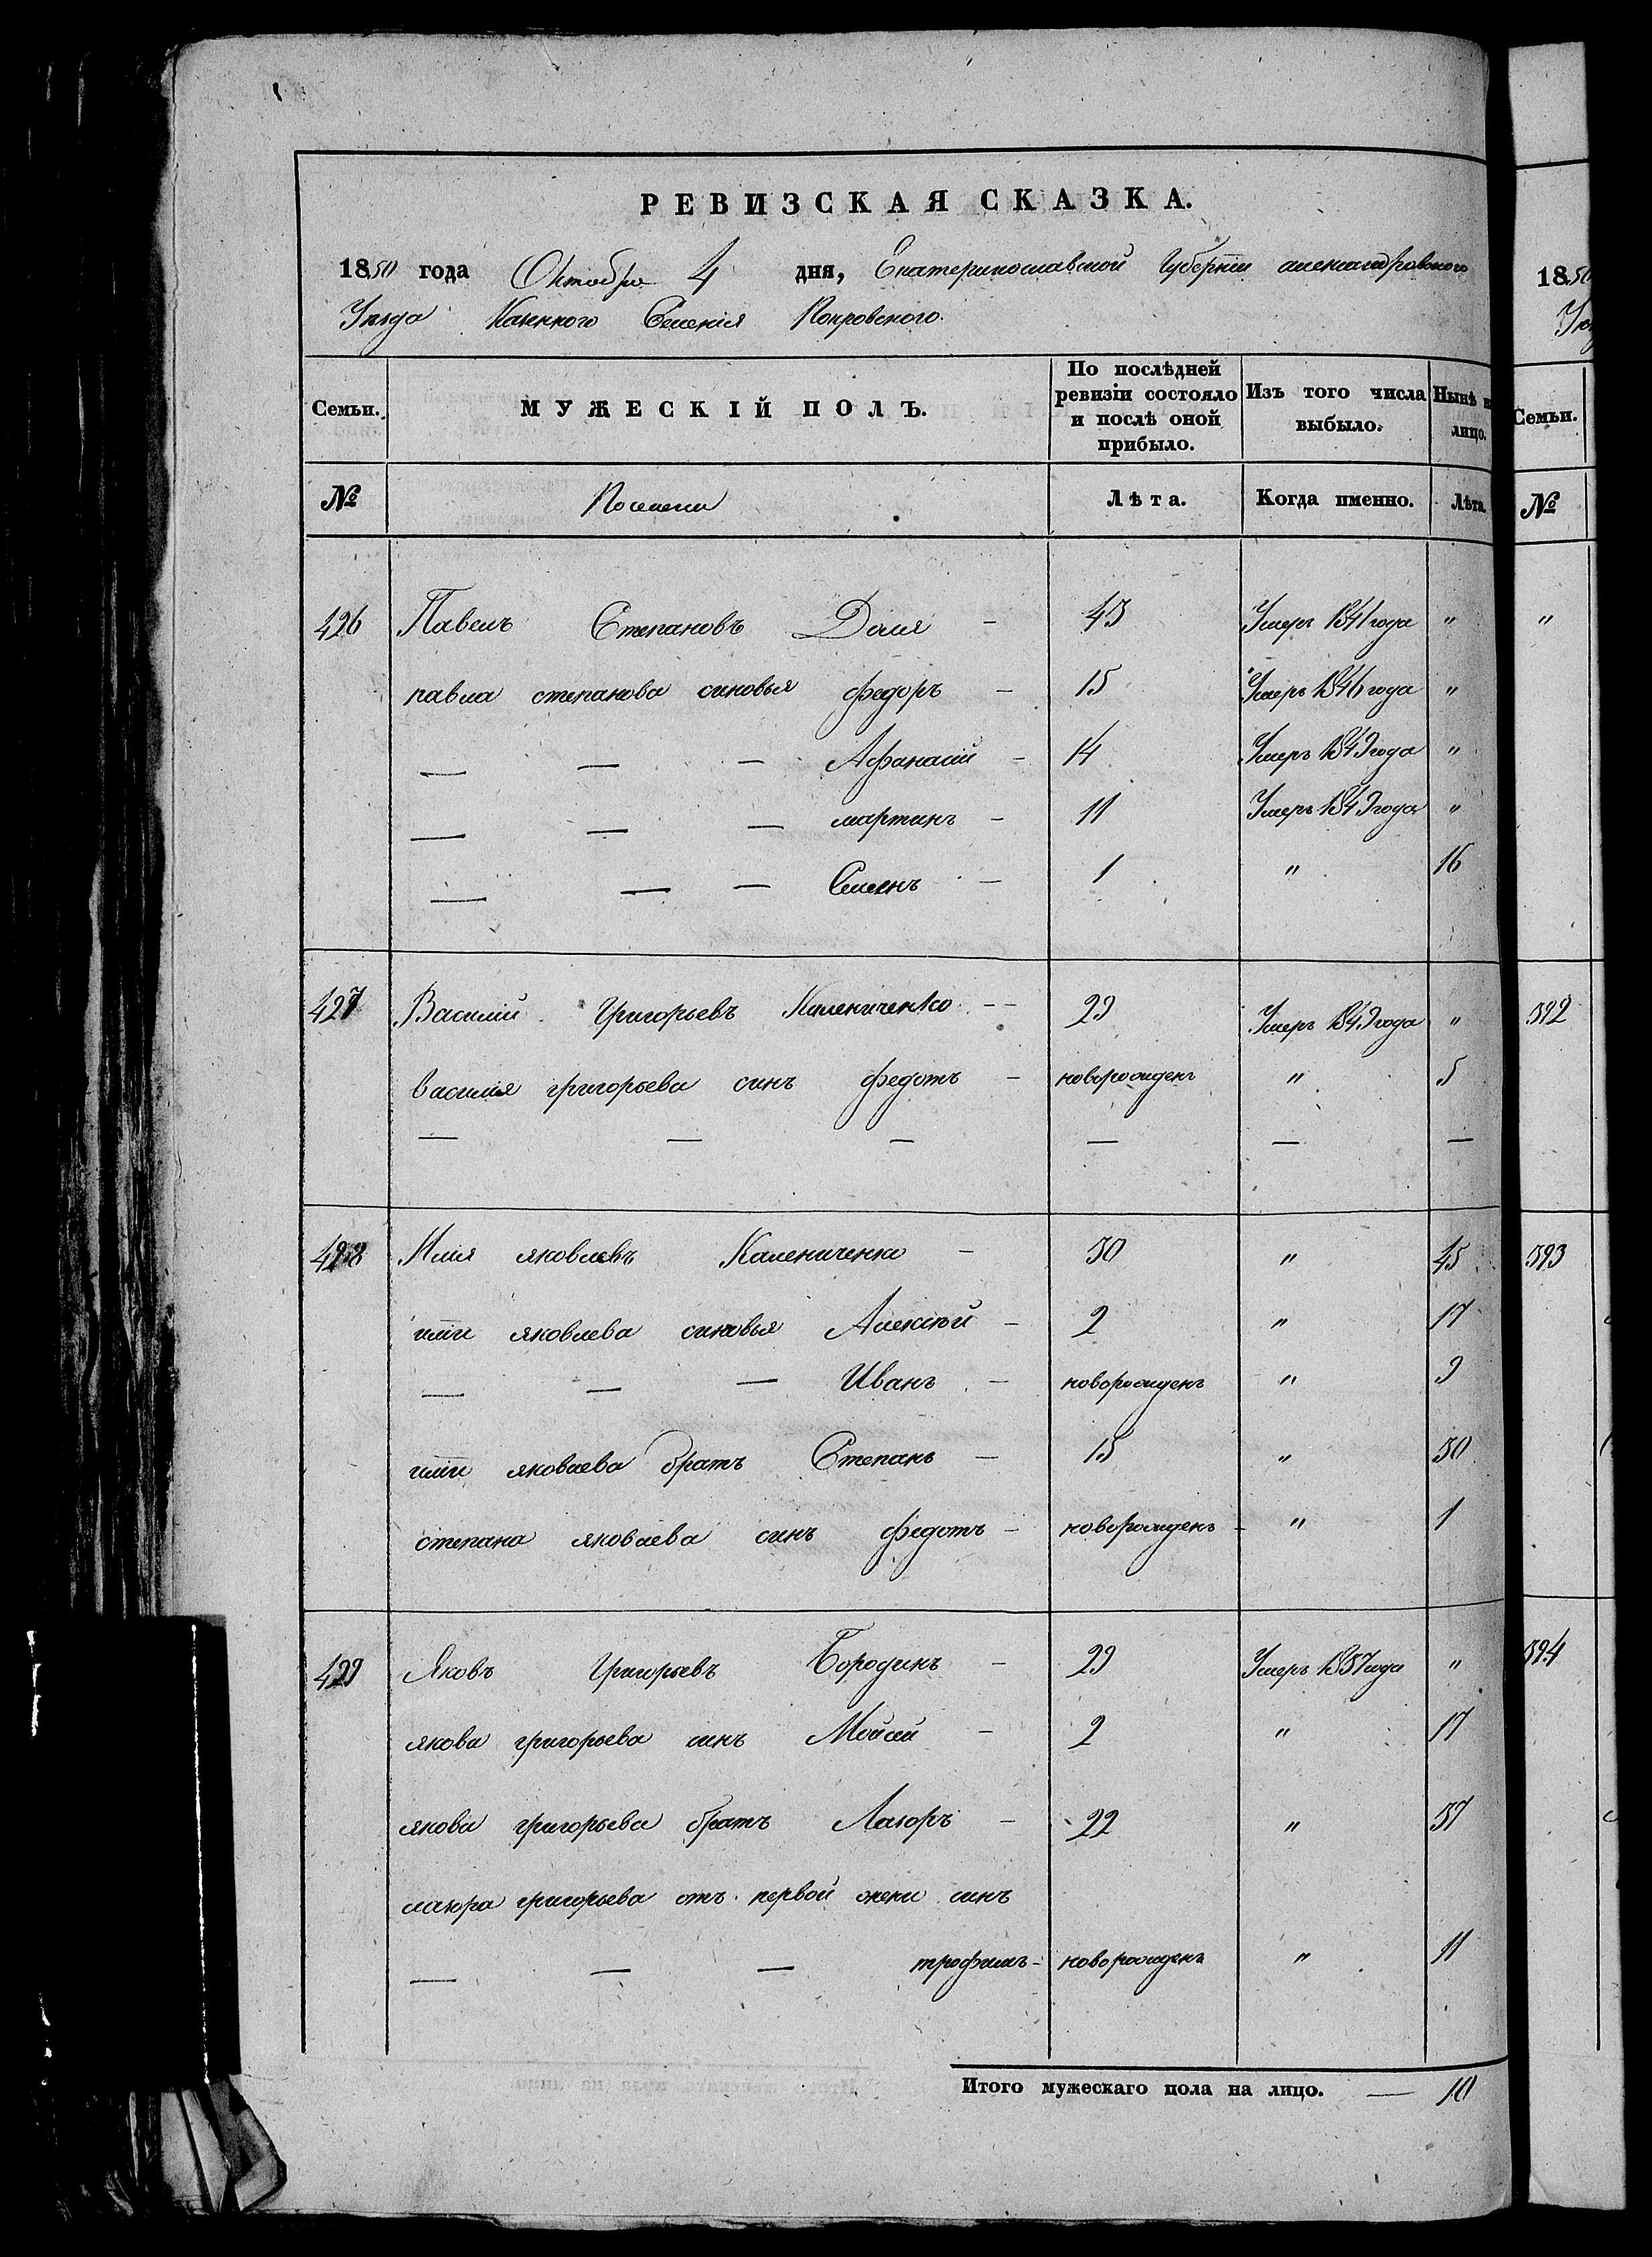 РЕВИЗСКАЯ СКАЗКА.
1850 года Октября 4 дня, Екатеринославской Губерніи александровского
Уезда Казенного Селенія Покровского.
Семьи. МУЖЕСКІЙ ПОЛЪ. По послѣдней ревизіи состояло и послѣ оной прибыло. Изъ того числа выбыло. Нынѣ н лицо.
№ Поселени Лѣта. Когда именно. Лѣта.
426 Павелъ Степановъ Доля - 45 Умеръ 1841 года "
павла степанова синовья федоръ - 15 Умеръ 1846 года "
— — — Афанасій - 14 Умеръ 1849 года "
— — — мартинъ - 11 Умеръ 1849 года "
— — — Семенъ - 1 " 16
427 Василій Григорьевъ Калениченко -- 29 Умеръ 1849 года "
василия григорьева синъ федотъ - новорожденъ " 5
— — — — — —
428 Илія яковлевъ Калениченко - 30 " 45
иліи яковлева синовья Алексѣй - 2 " 17
— — — Иванъ - новорожденъ " 9
иліи яковлева братъ Степанъ - 15 " 30
степана яковлева синъ федотъ - новорожденъ - " 1
429 Яковъ Григорьевъ Бородинъ - 29 Умеръ 1837 года "
якова григорьева синъ Мойсей - 2 " 17
якова григорьева братъ Лазоръ - 22 " 37
лазора григорьева отъ первой жени синъ
— — — трофимъ - новорожденъ " 11
Итого мужескаго пола на лицо. — 10
1850
Семьи.
№
"
392
393
394